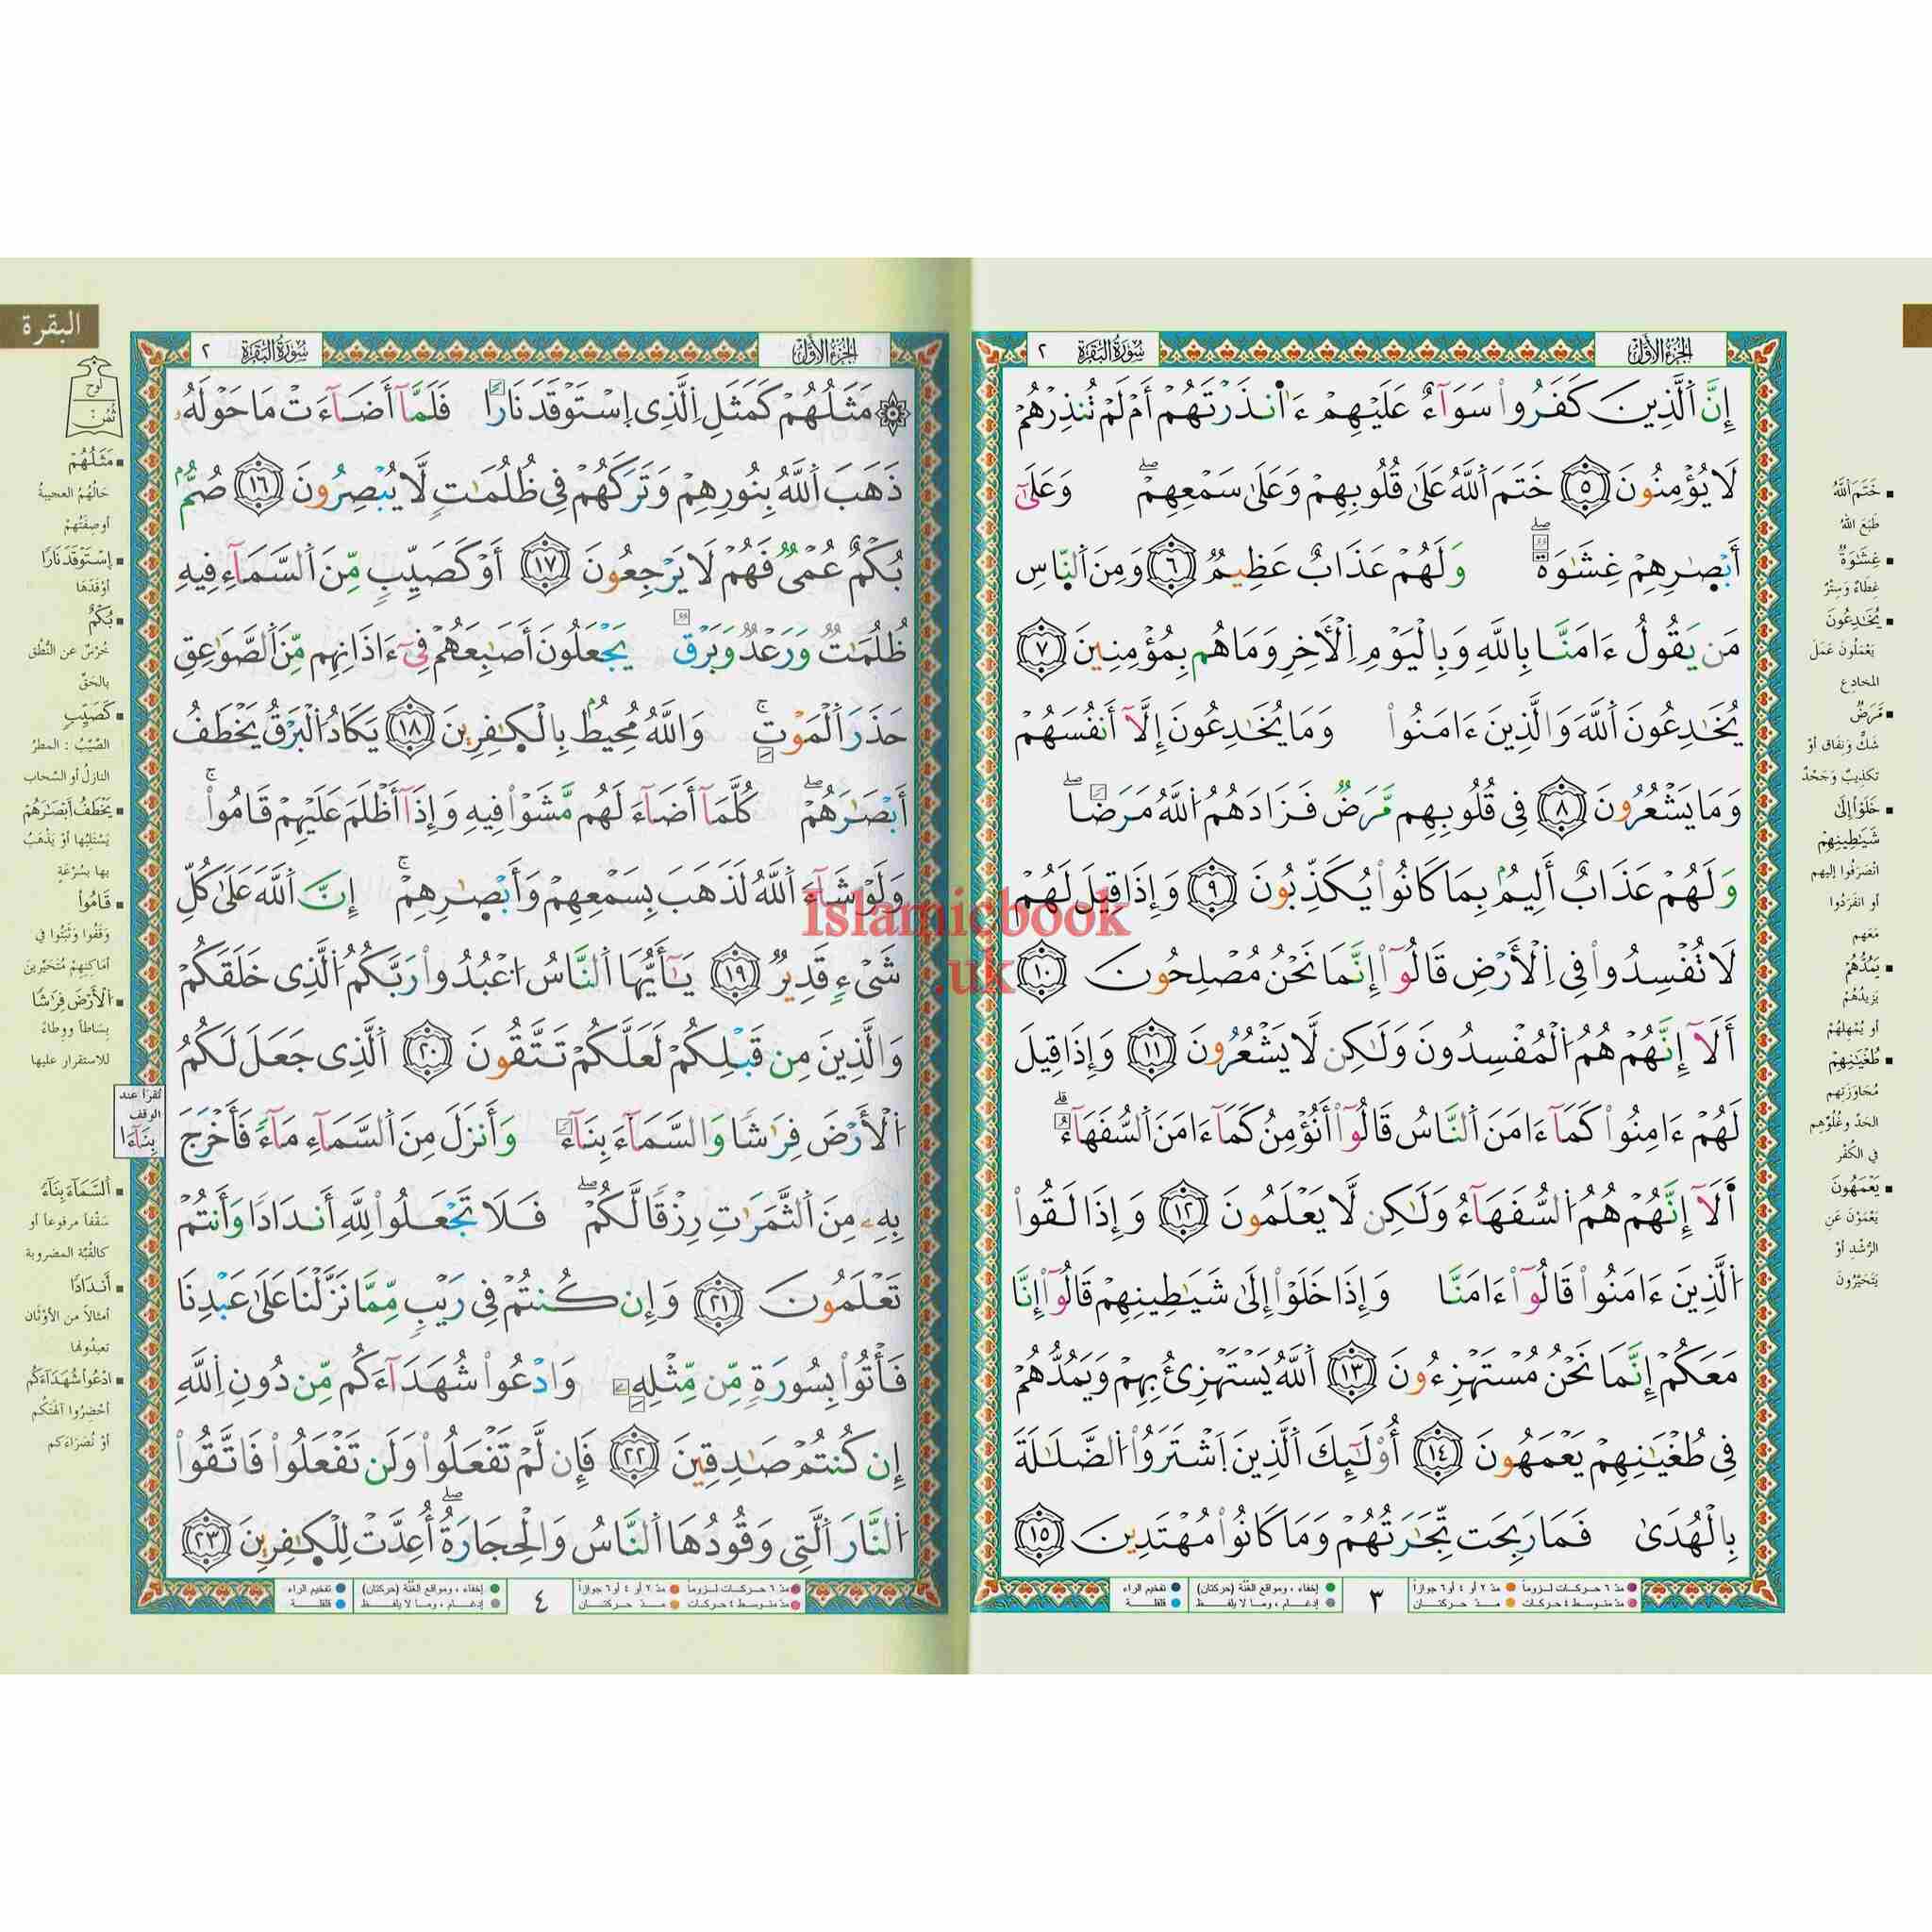 الجزء الأول
سورة البقرة ٢
إِنَّ ٱلَّذِينَ كَفَرُوا۟ سَوَآءٌ عَلَيْهِمْ ءَاٰنذَرْتَهُمْ أَمْ لَمْ تُنذِرْهُمْ
لَا يُؤْمِنُونَ ٥ خَتَمَ ٱللَّهُ عَلَىٰ قُلُوبِهِمْ وَعَلَىٰ سَمْعِهِمْ ۖ وَعَلَىٰٓ
أَبْصَٰرِهِمْ غِشَٰوَةٌ ۖ وَلَهُمْ عَذَابٌ عَظِيمٌ ٦ وَمِنَ ٱلنَّاسِ
مَن يَقُولُ ءَامَنَّا بِاللَّهِ وَبِالْيَوْمِ ٱلْأَخِرِ وَمَا هُم بِمُؤْمِنِينَ ٧
يُخَٰدِعُونَ ٱللَّهَ وَالَّذِينَ ءَامَنُوا۟ وَمَا يُخَٰدِعُونَ إِلَّآ أَنفُسَهُمْ
وَمَا يَشْعُرُونَ ٨ فِى قُلُوبِهِم مَّرَضٌ فَزَادَهُمُ ٱللَّهُ مَرَضًا ۖ
وَلَهُمْ عَذَابٌ أَلِيمٌ بِمَا كَانُوا۟ يُكَذِّبُونَ ٩ وَإِذَا قِيلَ لَهُمْ
لَا تُفْسِدُوا۟ فِى ٱلْأَرْضِ قَالُوٓا۟ إِنَّمَا نَحْنُ مُصْلِحُونَ ١٠
أَلَآ إِنَّهُمْ هُمُ ٱلْمُفْسِدُونَ وَلَٰكِن لَّا يَشْعُرُونَ ١١ وَإِذَا قِيلَ
لَهُمْ ءَامِنُوا۟ كَمَآ ءَامَنَ ٱلنَّاسُ قَالُوٓا۟ أَنُؤْمِنُ كَمَآ ءَامَنَ ٱلسُّفَهَآءُ ۗ
أَلَآ إِنَّهُمْ هُمُ ٱلسُّفَهَآءُ وَلَٰكِن لَّا يَعْلَمُونَ ١٢ وَإِذَا لَقُوا۟
ٱلَّذِينَ ءَامَنُوا۟ قَالُوٓا۟ ءَامَنَّا وَإِذَا خَلَوْا۟ إِلَىٰ شَيَٰطِينِهِمْ قَالُوٓا۟ إِنَّا
مَعَكُمْ إِنَّمَا نَحْنُ مُسْتَهْزِءُونَ ١٣ ٱللَّهُ يَسْتَهْزِئُ بِهِمْ وَيَمُدُّهُمْ
فِى طُغْيَٰنِهِمْ يَعْمَهُونَ ١٤ أُو۟لَٰٓئِكَ ٱلَّذِينَ ٱشْتَرَوُا۟ ٱلضَّلَٰلَةَ
بِالْهُدَىٰ فَمَا رَبِحَت تِّجَٰرَتُهُمْ وَمَا كَانُوا۟ مُهْتَدِينَ ١٥
مدّ ٦ حركات لزوماً مدّ ٢ أو ٤ أو ٦ جوازاً ٣ إخفاء ، ومواقع الغنّة (حركتان) تفخيم الراء
مدّ متوسط ٤ حركات مدّ حركتان إدغام ، وما لا يلفظ قلقلة
خَتَمَ ٱللَّهُ
طَبَعَ اللهُ
غِشَٰوَةٌ
غِطَاءٌ وَسِتْرٌ
يُخَٰدِعُونَ
يَعْمَلُونَ عَمَلَ
المخادِع
مَّرَضٌ
شَكٌّ وَنِفَاق أوْ
تكذيبٌ وَجَحْدٌ
خَلَوْا۟ إِلَىٰ
شَيَٰطِينِهِمْ
انْصَرَفُوا إليهم
أو انفَرَدُوا
مَعَهم
يَمُدُّهُمْ
يَزِيدُهُمْ
أو يُمْهِلُهُمْ
طُغْيَٰنِهِمْ
مُجَاوَزَتِهم
الحَدّ وغُلُوِّهِم
في الكُفْر
يَعْمَهُونَ
يَعْمَوْنَ عَنِ
الرُّشْدِ أوْ
يَتَحَيَّرُونَ
البقرة
الجزء الأول
سورة البقرة ٢
۞ مَثَلُهُمْ كَمَثَلِ ٱلَّذِى ٱسْتَوْقَدَ نَارًا فَلَمَّآ أَضَآءَتْ مَا حَوْلَهُۥ
ذَهَبَ ٱللَّهُ بِنُورِهِمْ وَتَرَكَهُمْ فِى ظُلُمَٰتٍ لَّا يُبْصِرُونَ ١٦ صُمٌّ
بُكْمٌ عُمْىٌ فَهُمْ لَا يَرْجِعُونَ ١٧ أَوْ كَصَيِّبٍ مِّنَ ٱلسَّمَآءِ فِيهِ
ظُلُمَٰتٌ وَرَعْدٌ وَبَرْقٌ يَجْعَلُونَ أَصَٰبِعَهُمْ فِىٓ ءَاذَانِهِم مِّنَ ٱلصَّوَٰعِقِ
حَذَرَ ٱلْمَوْتِ ۚ وَاللَّهُ مُحِيطٌ بِالْكَٰفِرِينَ ١٨ يَكَادُ ٱلْبَرْقُ يَخْطَفُ
أَبْصَٰرَهُمْ ۖ كُلَّمَآ أَضَآءَ لَهُم مَّشَوْا۟ فِيهِ وَإِذَآ أَظْلَمَ عَلَيْهِمْ قَامُوا۟ ۚ
وَلَوْ شَآءَ ٱللَّهُ لَذَهَبَ بِسَمْعِهِمْ وَأَبْصَٰرِهِمْ ۚ إِنَّ ٱللَّهَ عَلَىٰ كُلِّ
شَىْءٍ قَدِيرٌ ١٩ يَٰٓأَيُّهَا ٱلنَّاسُ ٱعْبُدُوا۟ رَبَّكُمُ ٱلَّذِى خَلَقَكُمْ
وَالَّذِينَ مِن قَبْلِكُمْ لَعَلَّكُمْ تَتَّقُونَ ٢٠ ٱلَّذِى جَعَلَ لَكُمُ
ٱلْأَرْضَ فِرَٰشًا وَالسَّمَآءَ بِنَآءً وَأَنزَلَ مِنَ ٱلسَّمَآءِ مَآءً فَأَخْرَجَ
بِهِۦ مِنَ ٱلثَّمَرَٰتِ رِزْقًا لَّكُمْ ۖ فَلَا تَجْعَلُوا۟ لِلَّهِ أَندَادًا وَأَنتُمْ
تَعْلَمُونَ ٢١ وَإِن كُنتُمْ فِى رَيْبٍ مِّمَّا نَزَّلْنَا عَلَىٰ عَبْدِنَا
فَأْتُوا۟ بِسُورَةٍ مِّن مِّثْلِهِۦ وَادْعُوا۟ شُهَدَآءَكُم مِّن دُونِ ٱللَّهِ
إِن كُنتُمْ صَٰدِقِينَ ٢٢ فَإِن لَّمْ تَفْعَلُوا۟ وَلَن تَفْعَلُوا۟ فَاتَّقُوا۟
ٱلنَّارَ ٱلَّتِى وَقُودُهَا ٱلنَّاسُ وَالْحِجَارَةُ ۖ أُعِدَّتْ لِلْكَٰفِرِينَ ٢٣
مدّ ٦ حركات لزوماً مدّ ٢ أو ٤ أو ٦ جوازاً ٤ إخفاء ، ومواقع الغنّة (حركتان) تفخيم الراء
مدّ متوسط ٤ حركات مدّ حركتان إدغام ، وما لا يلفظ قلقلة
لوح
ثُمُن
مَثَلُهُمْ
حَالُهُمُ العجيبةُ
أوصِفَتُهمْ
ٱسْتَوْقَدَ نَارًا
أوْقَدَهَا
بُكْمٌ
خُرْسٌ عن النُّطْقِ
بالحَقِّ
كَصَيِّبٍ
الصَّيِّبُ : المطرُ
النازلُ أو السَّحاب
يَخْطَفُ أَبْصَٰرَهُمْ
يَسْتَلِبُها أوْ يَذْهَبُ
بها بسُرْعَةٍ
قَامُوا۟
وَقَفُوا وَثَبَتُوا في
أماكنِهِمْ مُتَحَيِّرينَ
ٱلْأَرْضَ فِرَٰشًا
بِسَاطاً ووِطَاءً
للاستقرار عليها
تقرأ عند
الوقف
بِنَآءَا
ٱلسَّمَآءَ بِنَآءً
سَقْفاً مرفوعاً أو
كالقُبَّة المضروبة
أَندَادًا
أمثالاً من الأوْثَان
تعبدُونها
ٱدْعُوا۟ شُهَدَآءَكُم
أحْضِرُوا آلهتَكُم
أوْ نُصَرَاءَكم
Islamicbook
.uk